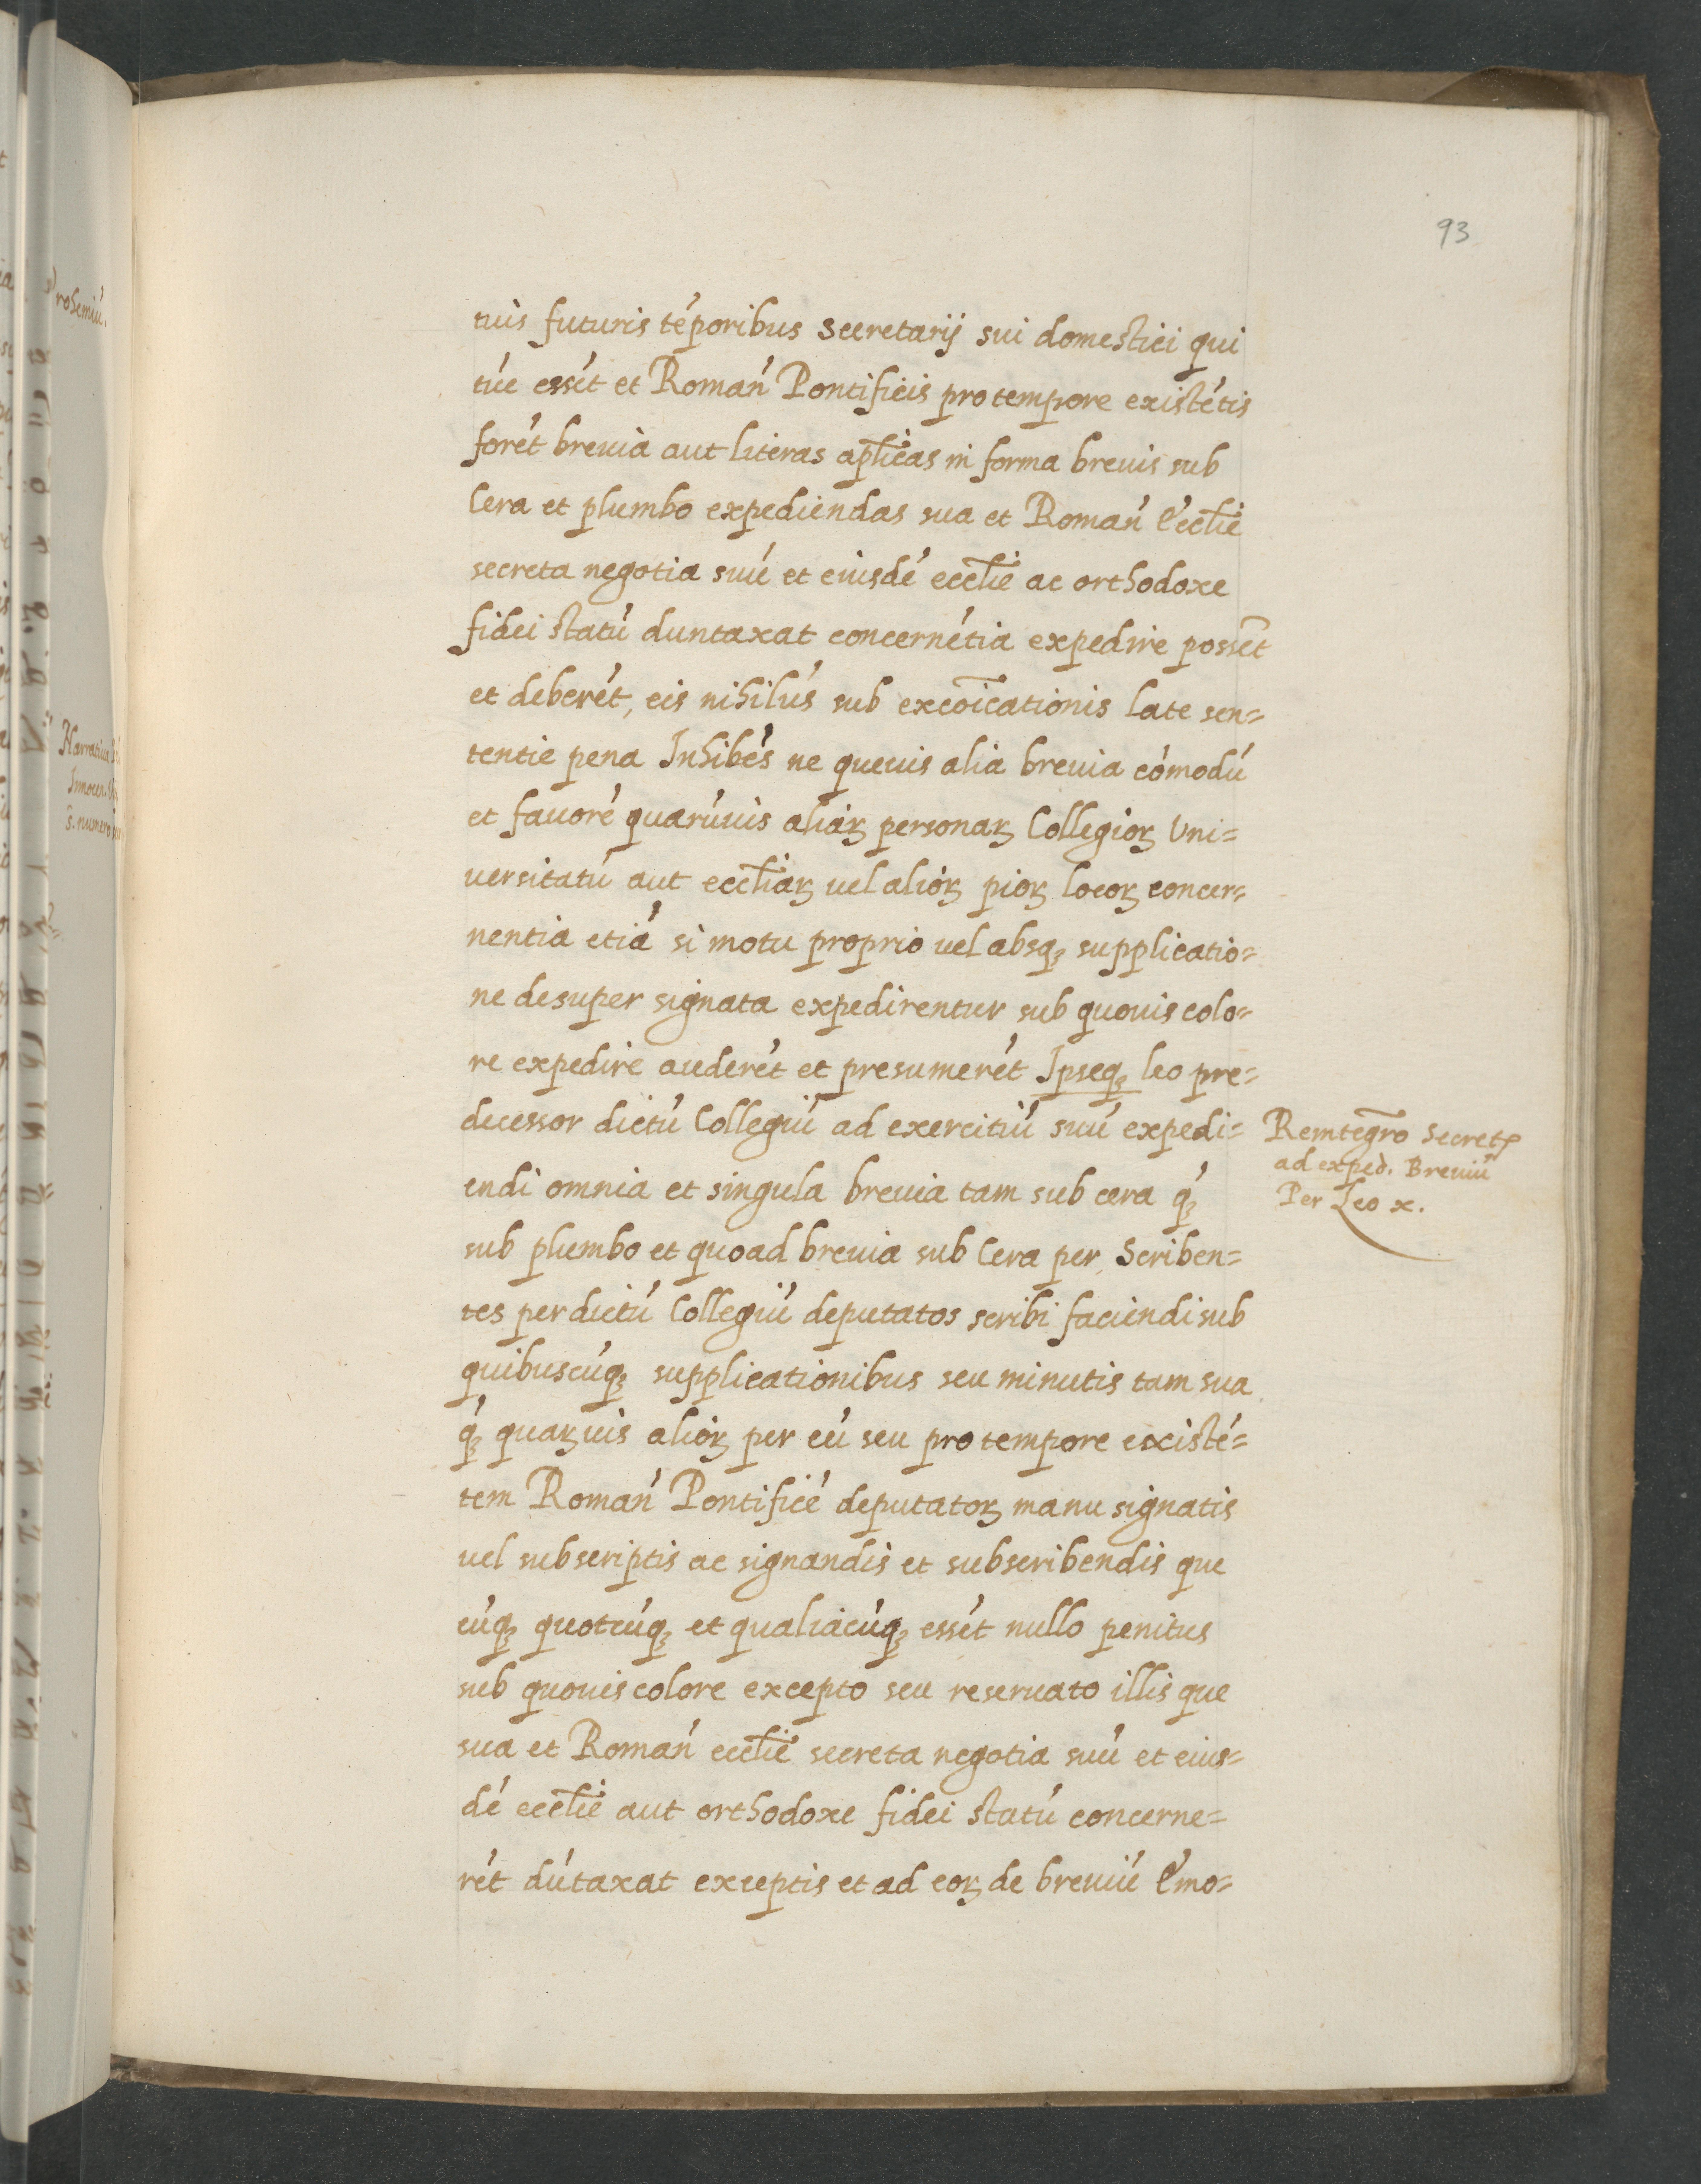 93
tuis futuris tēporibus Secretarij sui domestici qui
tūc essēt et Romañ Pontificis pro tempore existētis
forēt breuia aut literas apl̄icas in forma breuis sub
Cera et plumbo expediendas sua et Romañ Eccl̄ie
secreta negotia suū et eiusdē eccl̄ie ac orthodoxe
fidei statū duntaxat concernētia expedire possēt
et deberēt, eis nihilūs sub excōicationis late sen=
tentie pena Inhibēs ne queuis alia breuia cōmodū
et fauorē quarūuis aliaꝝ personaꝝ Collegioꝝ Uni=
uersitatū aut eccl̄iaꝝ uel alioꝝ pioꝝ locoꝝ concer=
nentia etiā si motu proprio uel absqꝫ supplicatio=
ne desuper signata expedirentur sub quouis colo=
re expedire auderēt et presumerēt Ipseqꝫ leo pre=
decessor dictū Collegiū ad exercitiū suū expedi=
endi omnia et singula breuia tam sub cera q̄ꝫ
sub plumbo et quoad breuia sub Cera per Scriben=
tes per dictū Collegiū deputatos scribi faciendi sub
quibuscūqꝫ supplicationibus seu minutis tam sua
q̄ꝫ quaꝝuis alioꝝ per eū seu pro tempore existē=
tem Romañ Pontificē deputatoꝝ manu signatis
uel subscriptis ac signandis et subscribendis que
cūqꝫ quotcūqꝫ et qualiacūqꝫ essēt nullo penitus
sub quouis colore excepto seu reseruato illis que
sua et Romañ eccl̄ie secreta negotia suū et eius=
dē eccl̄ie aut orthodoxe fidei statū concerne=
rēt dūtaxat exceptis et ad eoꝝ de breuiū Emo=
Reintegr̄o Secret
ad exped. Breuiū
Per Leo x.